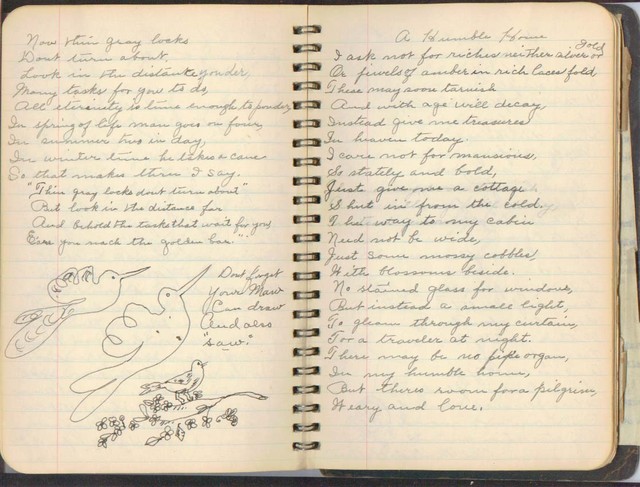 Now thin gray locks
Dont turn about,
Look in the distante yonder,
Many tasks for you to do,
All eternity is time enough to ponder,
In spring of life man goes on four,
In summer two in day,
In winter time he takes a cane
So that makes three I say.
"Thin gray locks dont turn about"
But look in the distance far
And behold the tasks that wait for you,
E're you reach the golden bar."
Dont forget
Your Maw
Can draw
And also
"saw."
A Humble Home
I ask not for riches neither silver or Gold
Or jewels of amber in rich laces fold
These may soon tarnish
And with age will decay,
Instead give me treasures
In heaven today.
I care not for mansions,
So stately and bold,
Just give me a cottage
Shut in from the cold.
The way to my cabin
Need not be wide,
Just some mossy cobbles
With blossoms beside.
No stained glass for windows,
But instead a small light,
To gleam through my curtain,
For a traveler at night.
There may be no pipe organ,
In my humble home,
But theres room for a pilgrim,
Weary and lone.